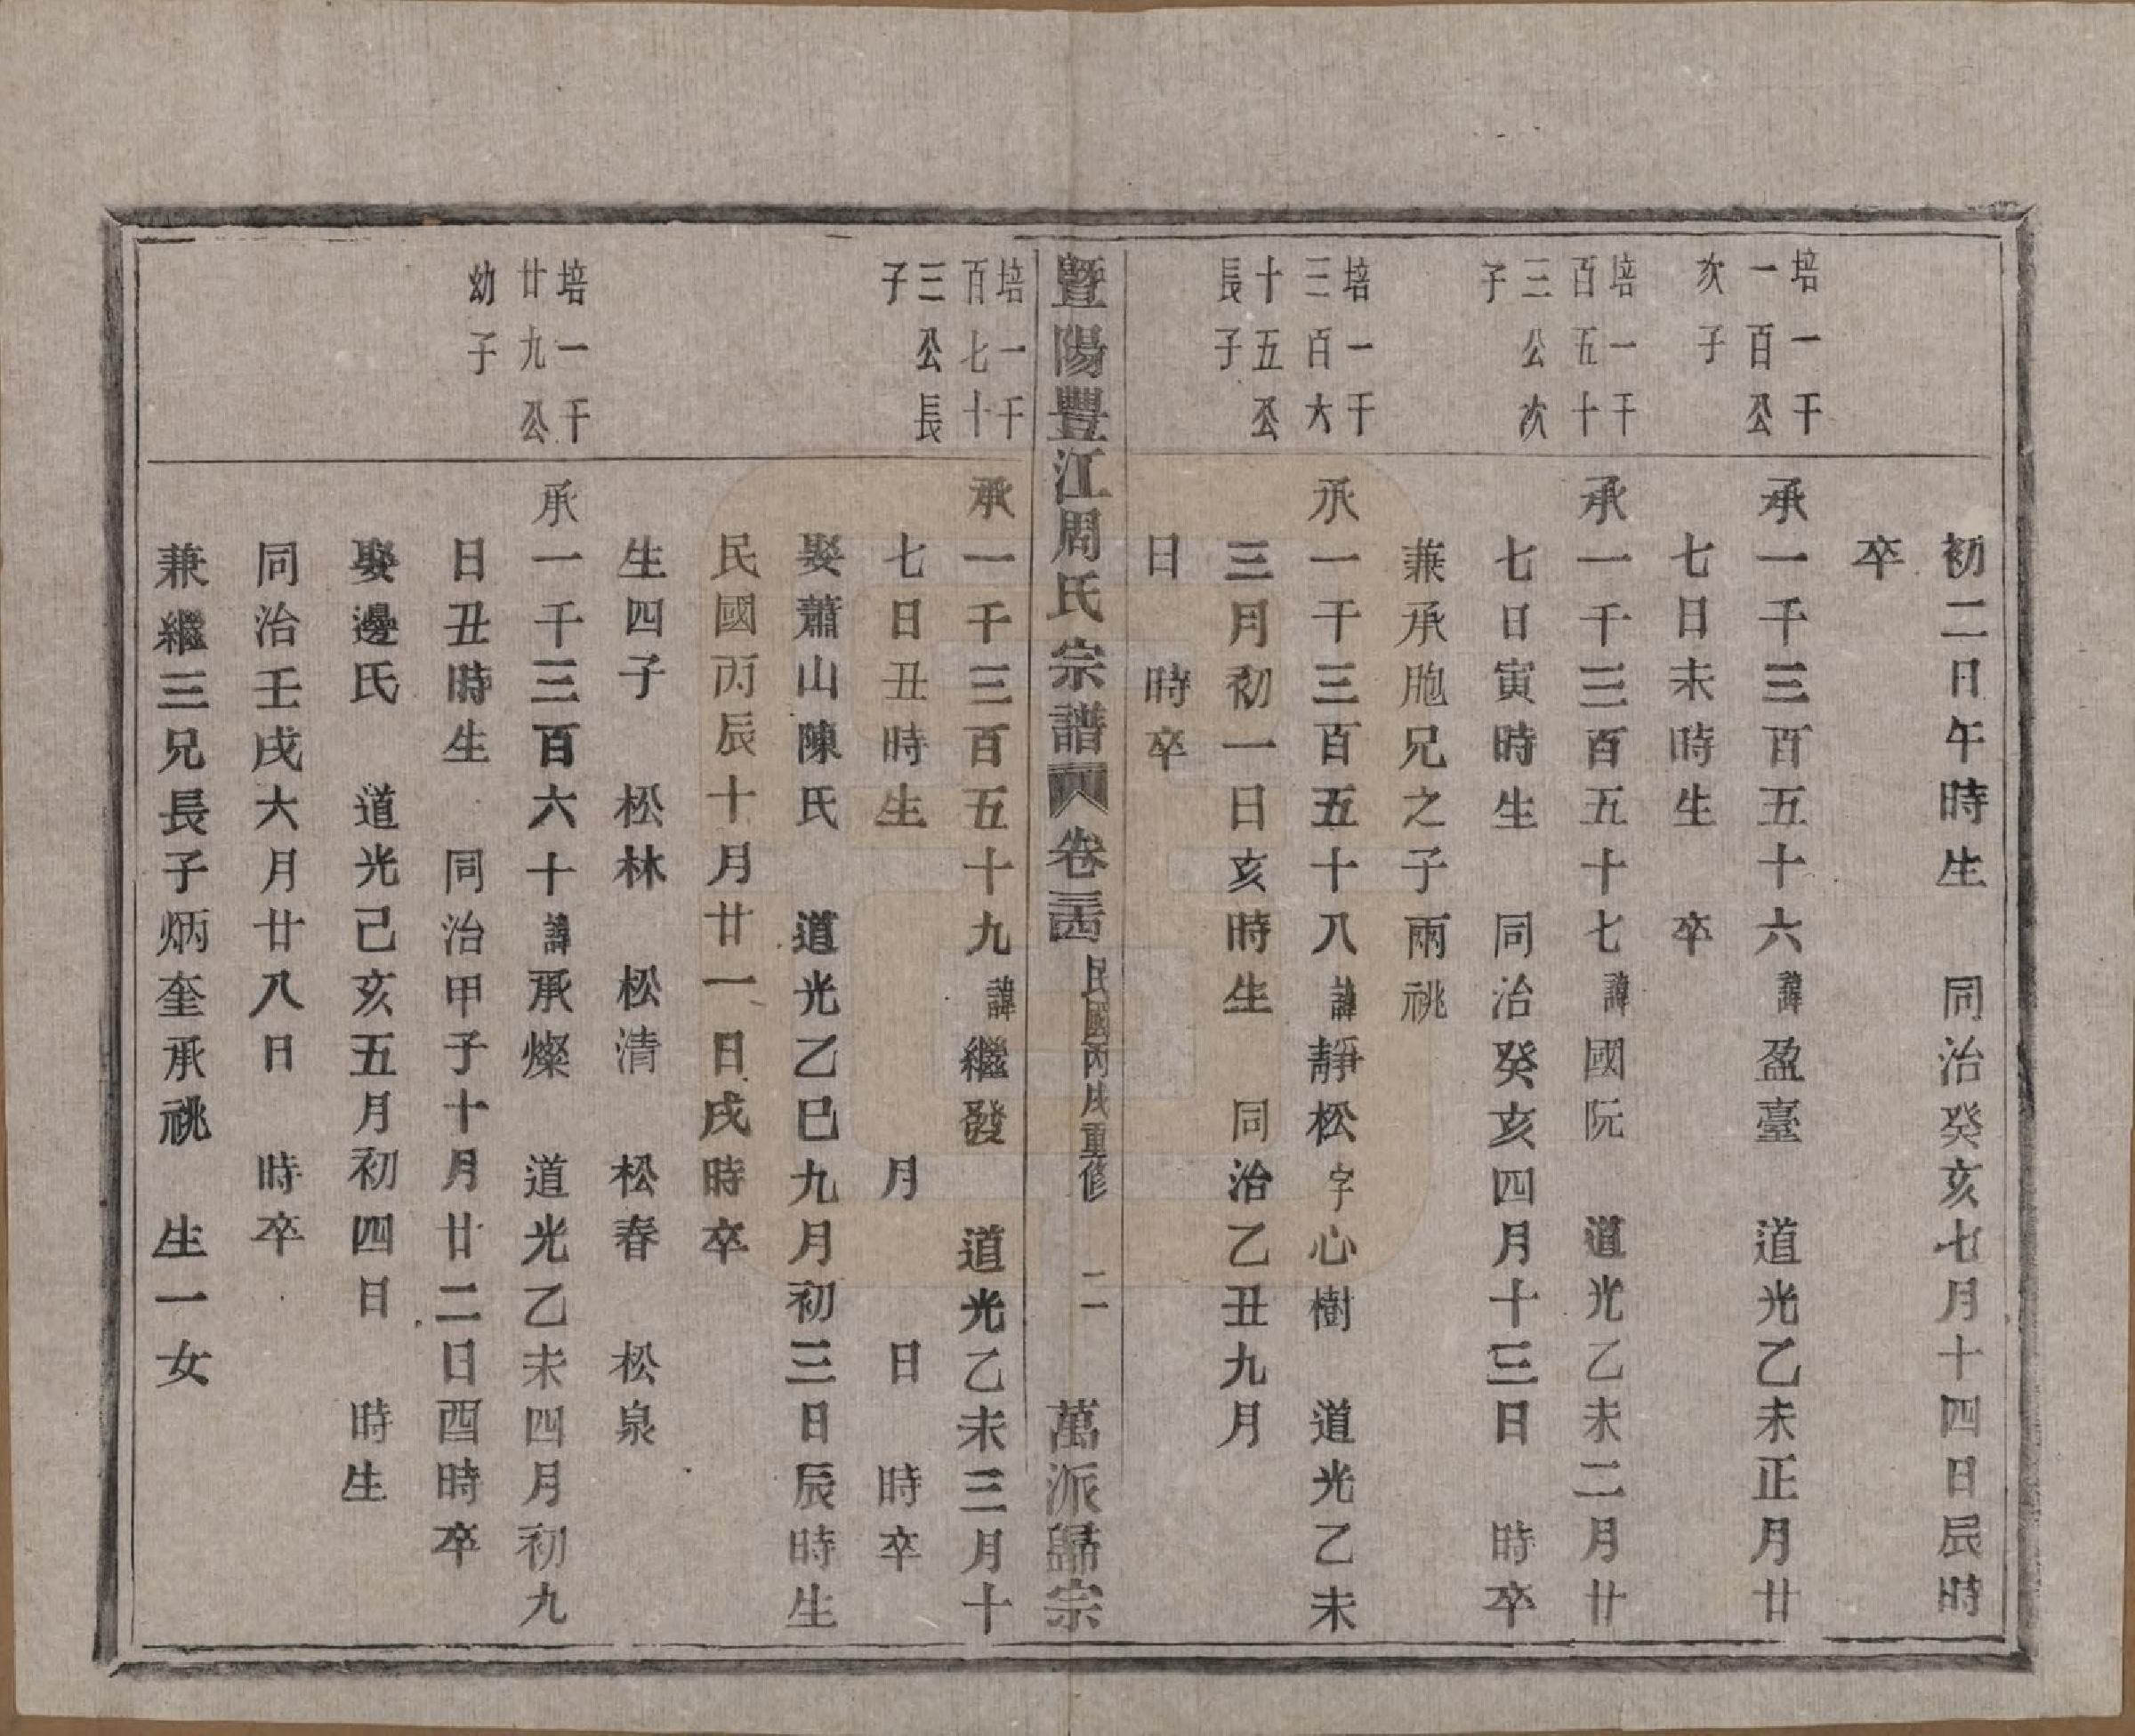 初二日午時生　同治癸亥七月十四日辰時
卒
培一千一百公次子
承一千三百五十六諱盈臺　道光乙未正月廿
七日未時生　卒
培一千百五十三公次子
承一千三百五十七諱國阮　道光乙未二月廿
七日寅時生　同治癸亥四月十三日　時卒
兼承胞兄之子兩祧
培一千三百六十五公長子
承一千三百五十八諱靜松字心樹　道光乙未
三月初一日亥時生　同治乙丑九月
日　時卒
暨陽豐江周氏宗譜　卷三四　民國丙戌重修　二　萬派歸宗
培一千百七十三公長子
承一千三百五十九諱繼發　道光乙未三月十
七日丑時生　月　日　時卒
娶蕭山陳氏　道光乙巳九月初三日辰時生
民國丙辰十月廿一日戌時卒
生四子　松林　松清　松春　松泉
培一千廿九公幼子
承一千三百六十諱承燦　道光乙未四月初九
日丑時生　同治甲子十月廿二日酉時卒
娶邊氏　道光己亥五月初四日　時生
同治壬戌六月廿八日　時卒
兼繼三兄長子炳奎承祧　生一女